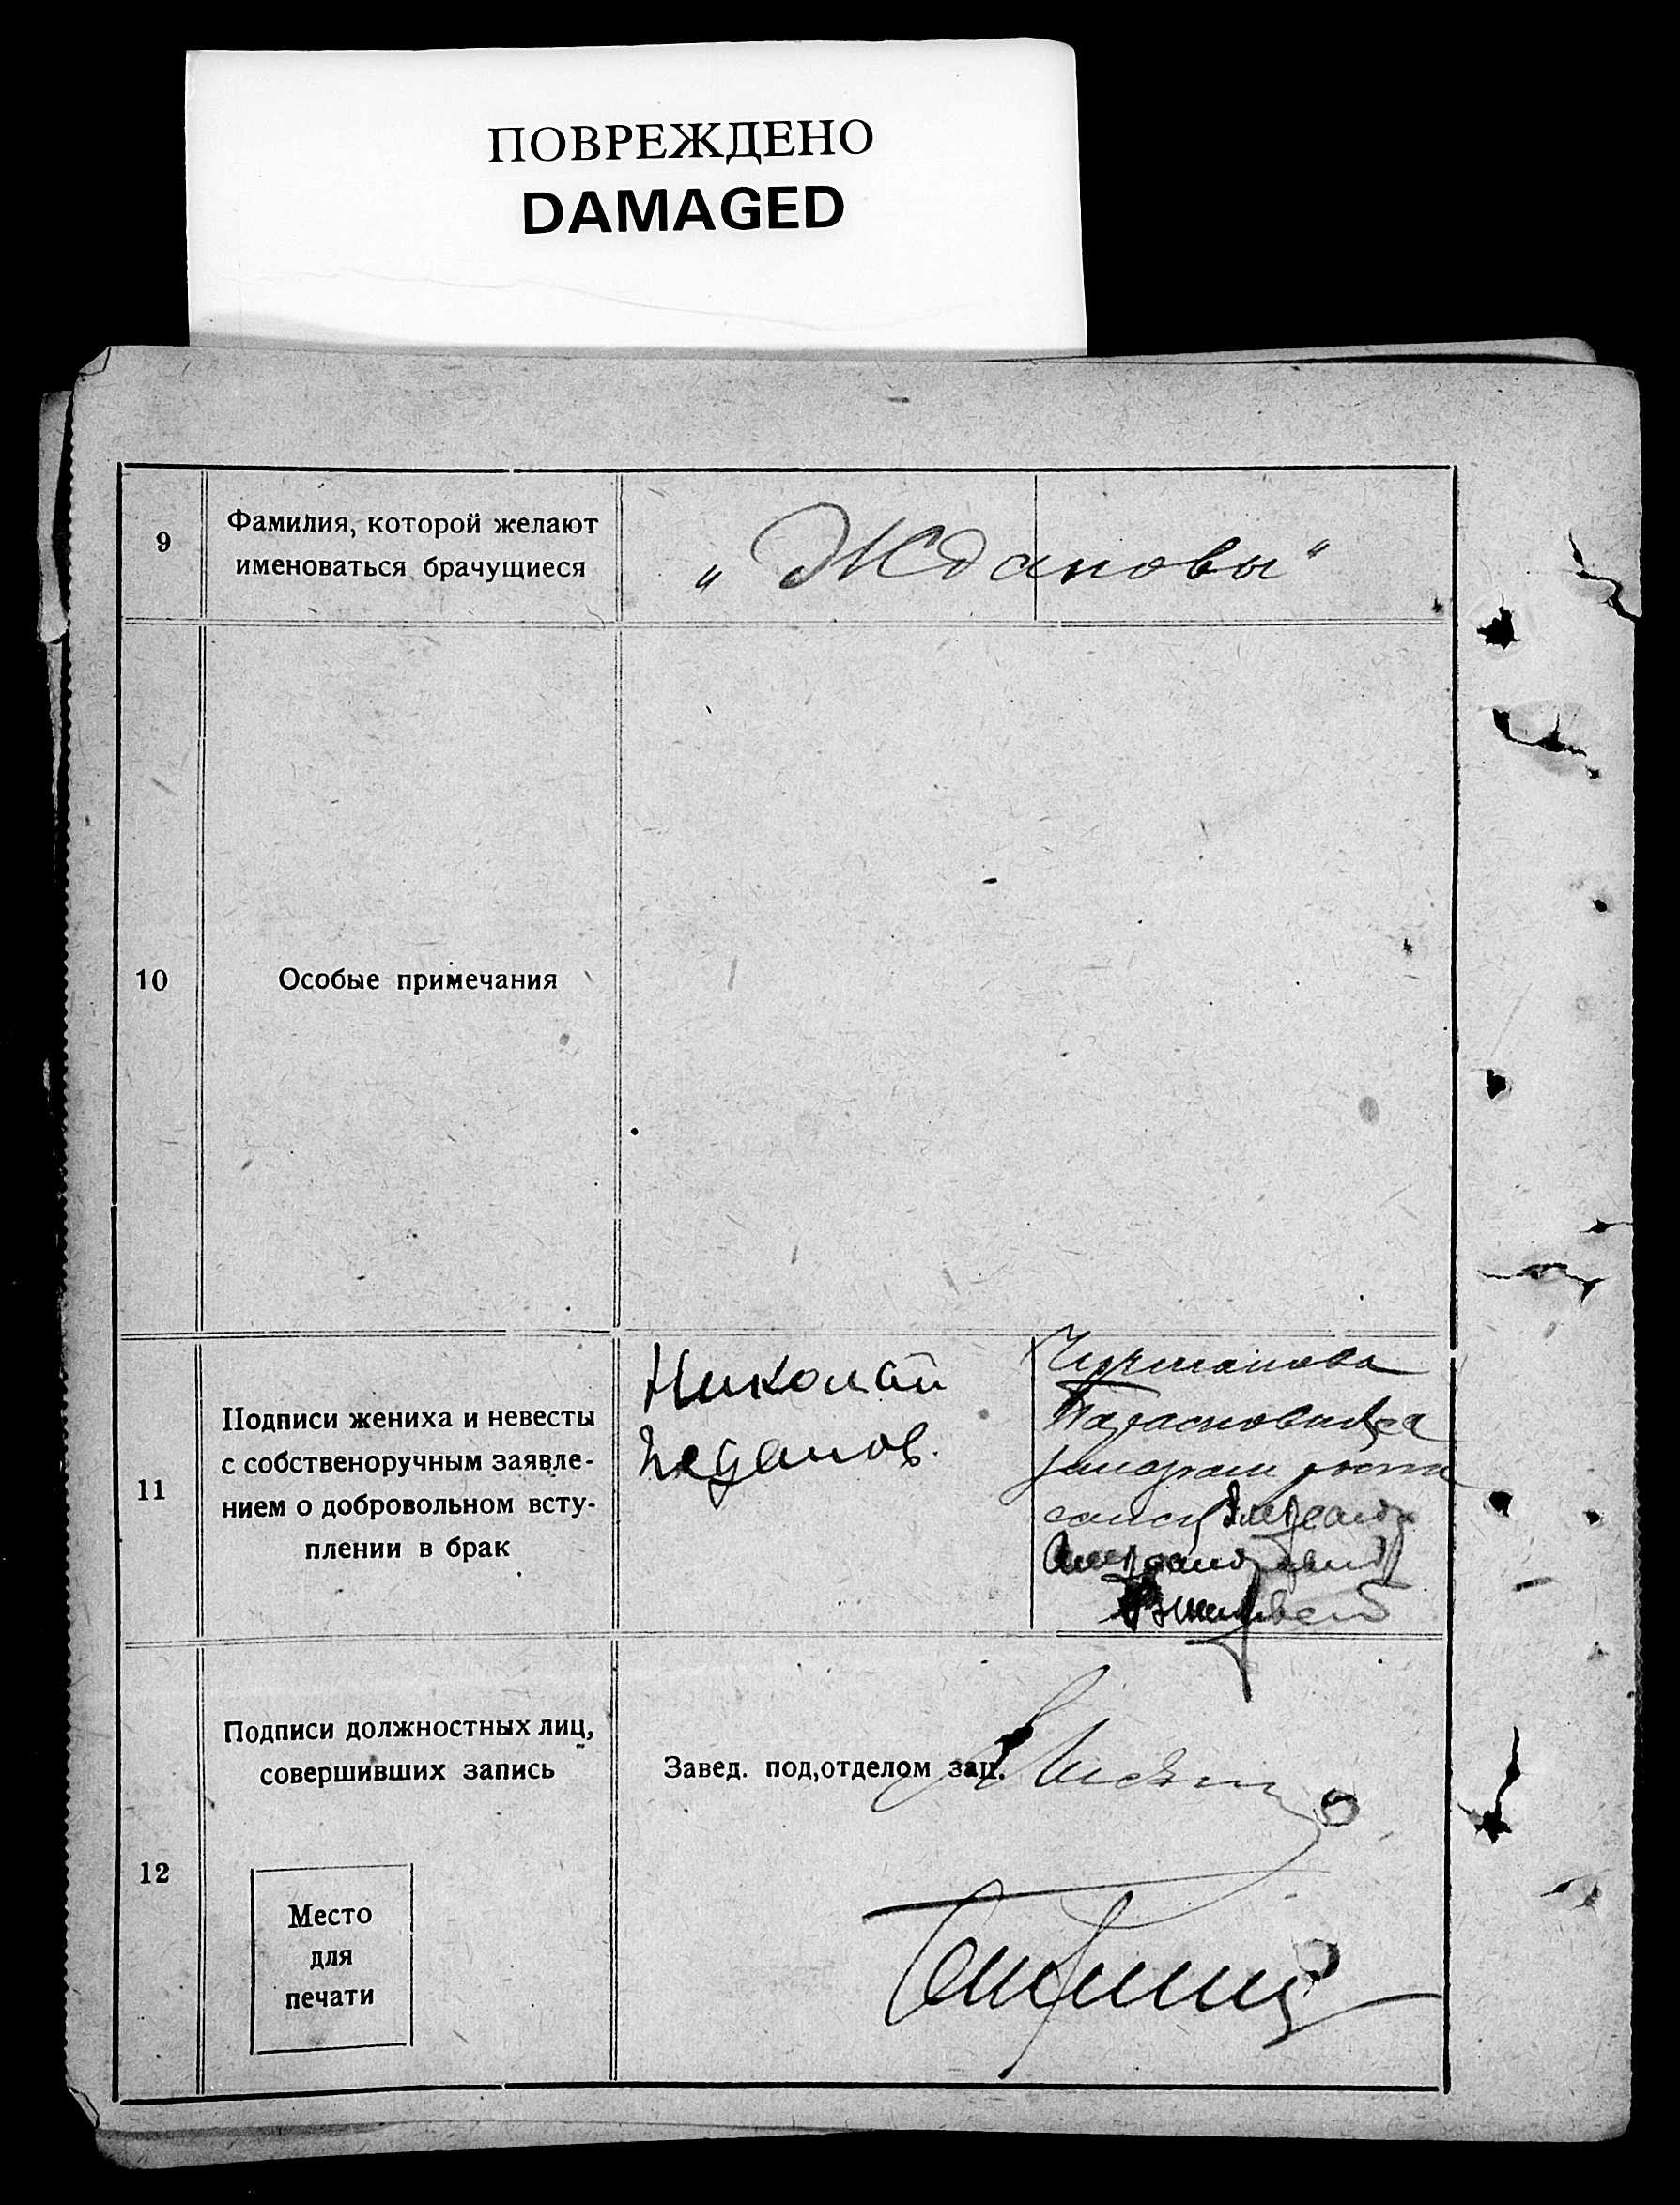 ПОВРЕЖДЕНО
DAMAGED
9
Фамилия, которой желают
именоваться брачущиеся
„Ждановы“
10
Особые примечания
11
Подписи жениха и невесты
с собственоручным заявле-
нием о добровольном всту-
плении в брак
Николай
Жданов.
12
Подписи должностных лиц,
совершивших запись
Место
для
печати
Завед. под,отделом зап.